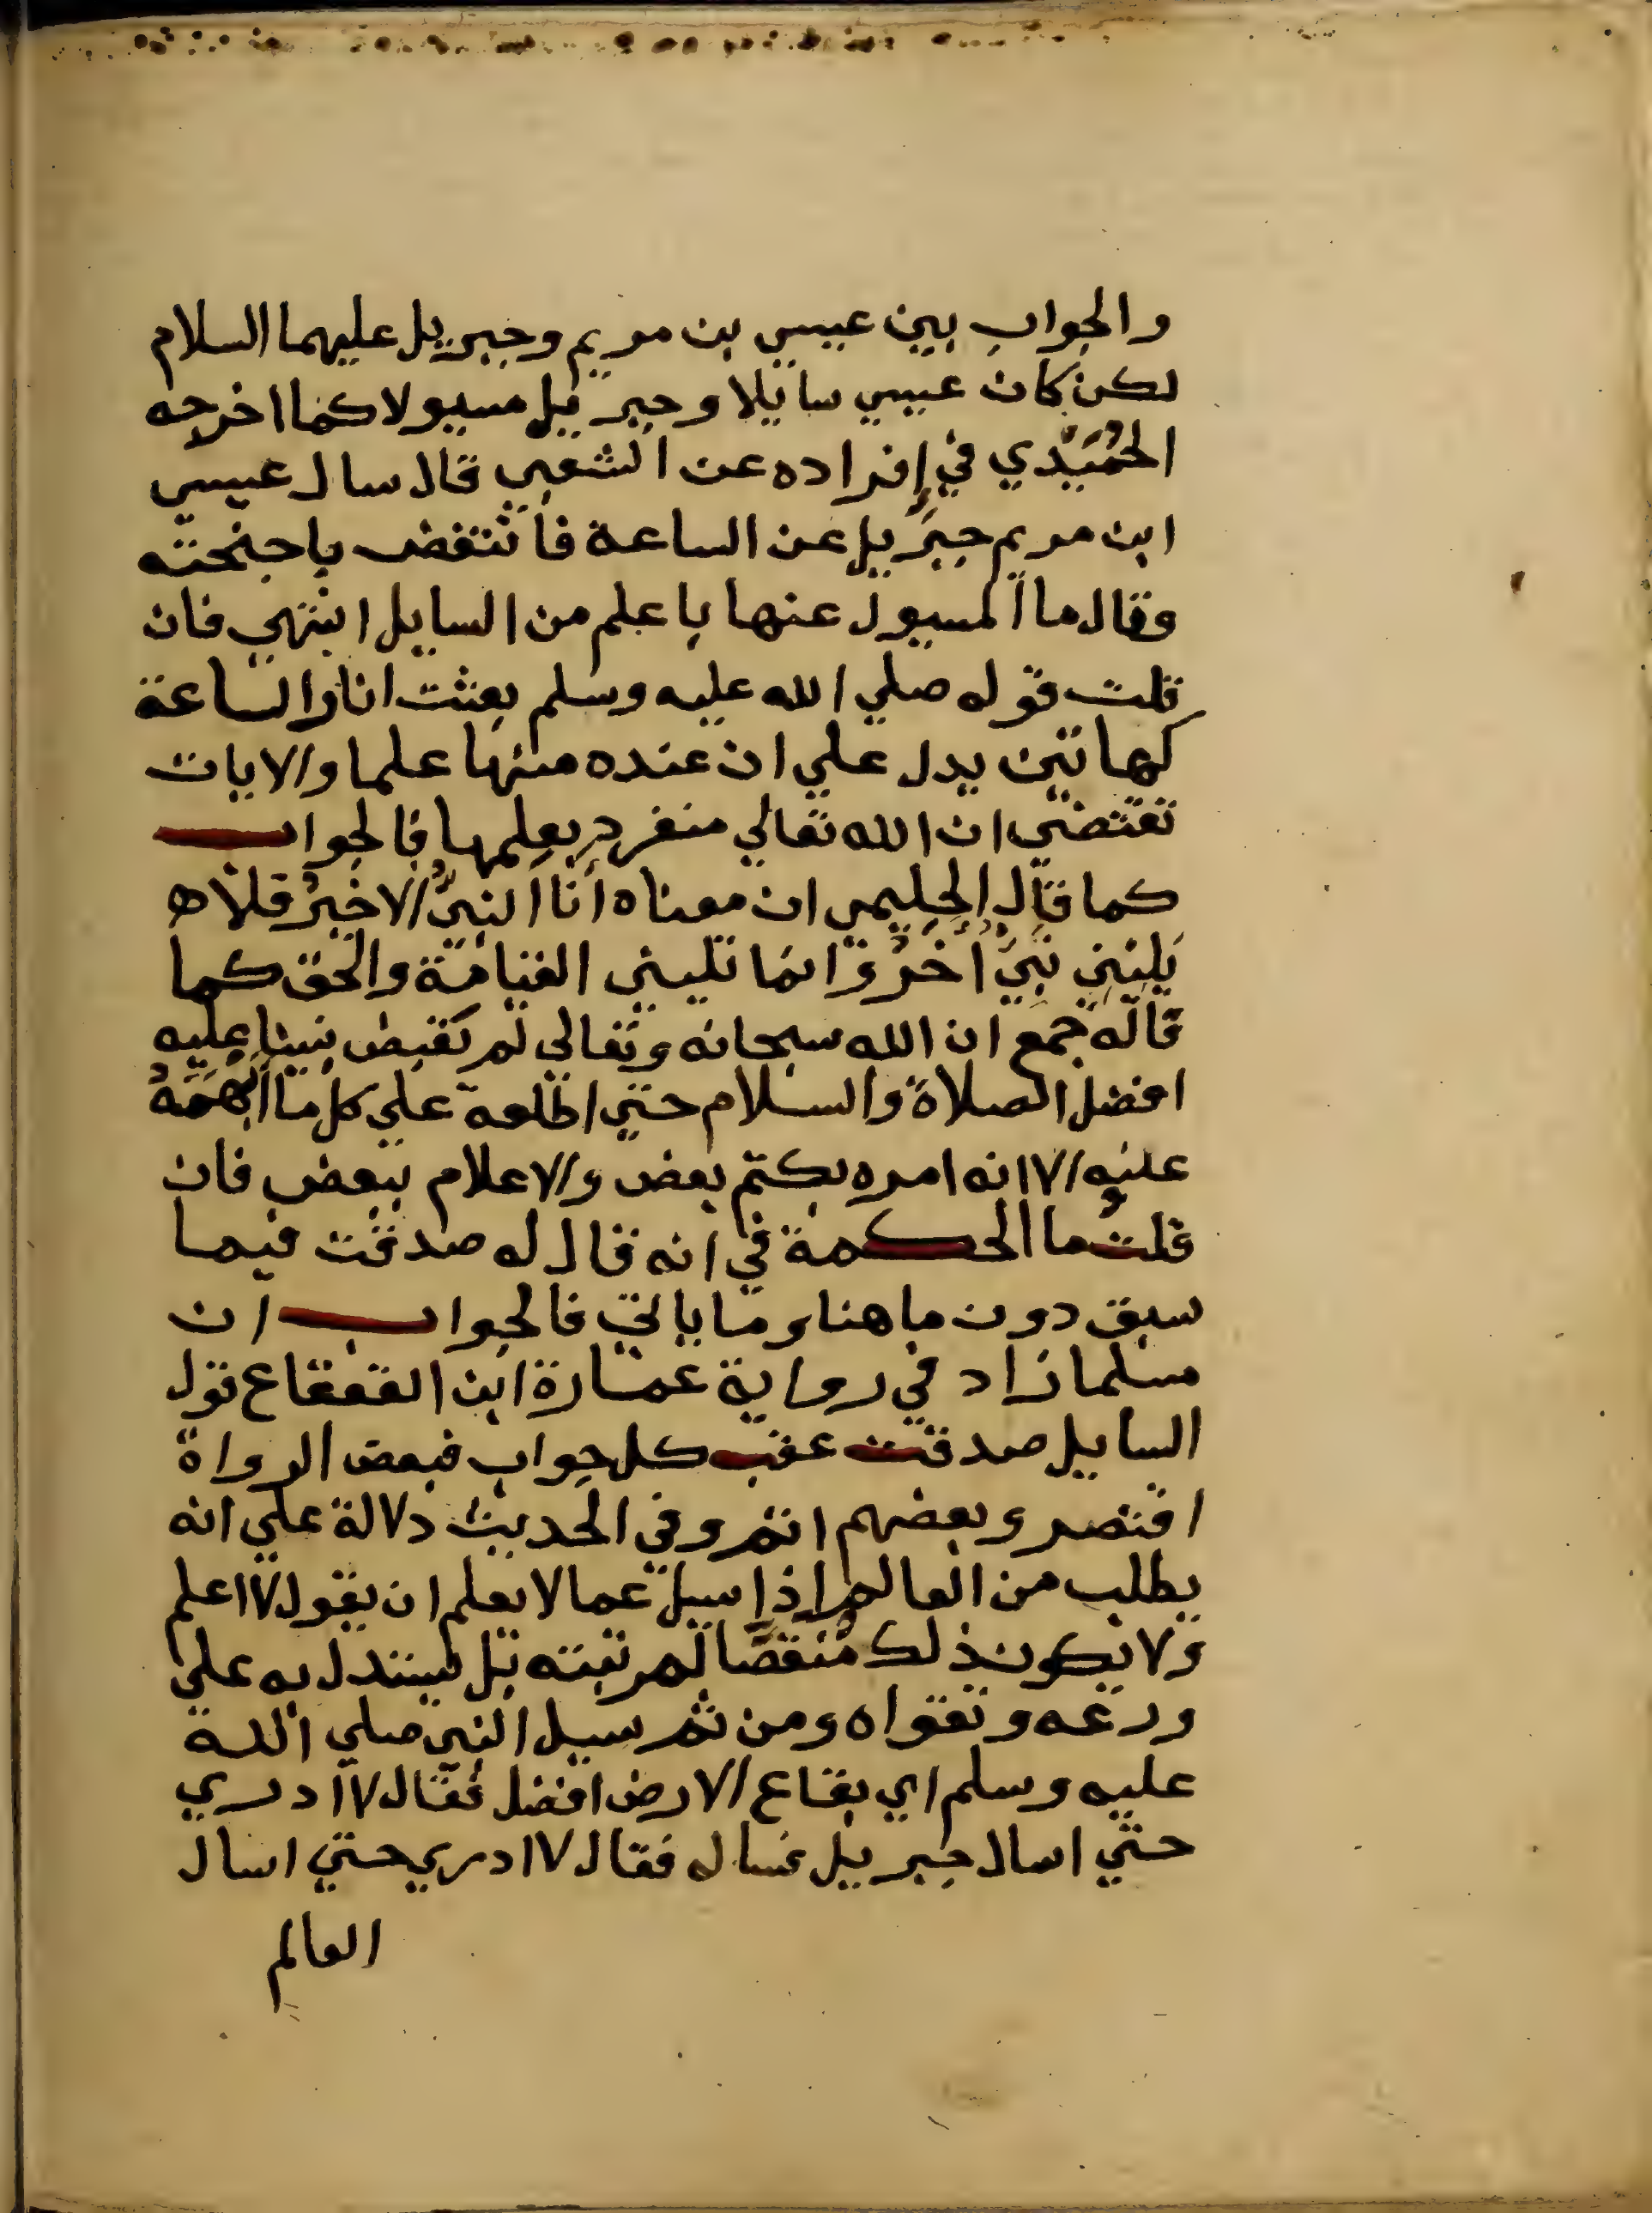 والجواب بين عيسي بن مريم وجبريل عليهما السلام
لكن كان عيسي سايلا وجبريل مسيولا كما اخرجه
الحُمَيْدي في إفراده عن الشعبي قال سال عيسي
ابن مريم جبريل عن الساعة فانتفض باجنحته
وقال ما المسيول عنها باعلم من السايل انتهي فان
قلت قوله صلي الله عليه وسلم بعثت انا والساعة
كهاتين يدل علي ان عنده منها علما والايات
تقتضي ان الله تعالي منفرد بعلمها فالجواب
كما قال الحليمي ان معناه أنا النبيُّ الاخيرُ فلا
يَلِيْنِي نبيٌّ أخرُ وانما تليني القيامة والحق كما
قاله جمع ان الله سبحانه وتعالي لم يقبض نبينا عليه
افضل الصلاة والسلام حتي اطلعه علي كل ما أَبْهَمَهُ
عليه الا انه امره بكتم بعض والاعلام ببعض فان
قلت ما الحكمة في انه قال له صدقت فيما
سبق دون ما هنا وما ياتي فالجواب ان
مسلما زاد في رواية عمارة ابن القعقاع قول
السايل صدقت عقب كل جواب فبعض الرواة
اقتصر وبعضهم اتم وفي الحديث دلالة علي انه
يطلب من العالم اذا سيل عما لا يعلم ان يقول لا اعلم
ولا يكون ذلك مُنَقِّصًا لمرتبته بل يستدل به علي
ورعه وتقواه ومن ثم سيل النبي صلي الله
عليه وسلم اي بقاع الارض افضل فقال لا ادري
حتي اسال جبريل فساله فقال لا ادري حتي اسال
العالم